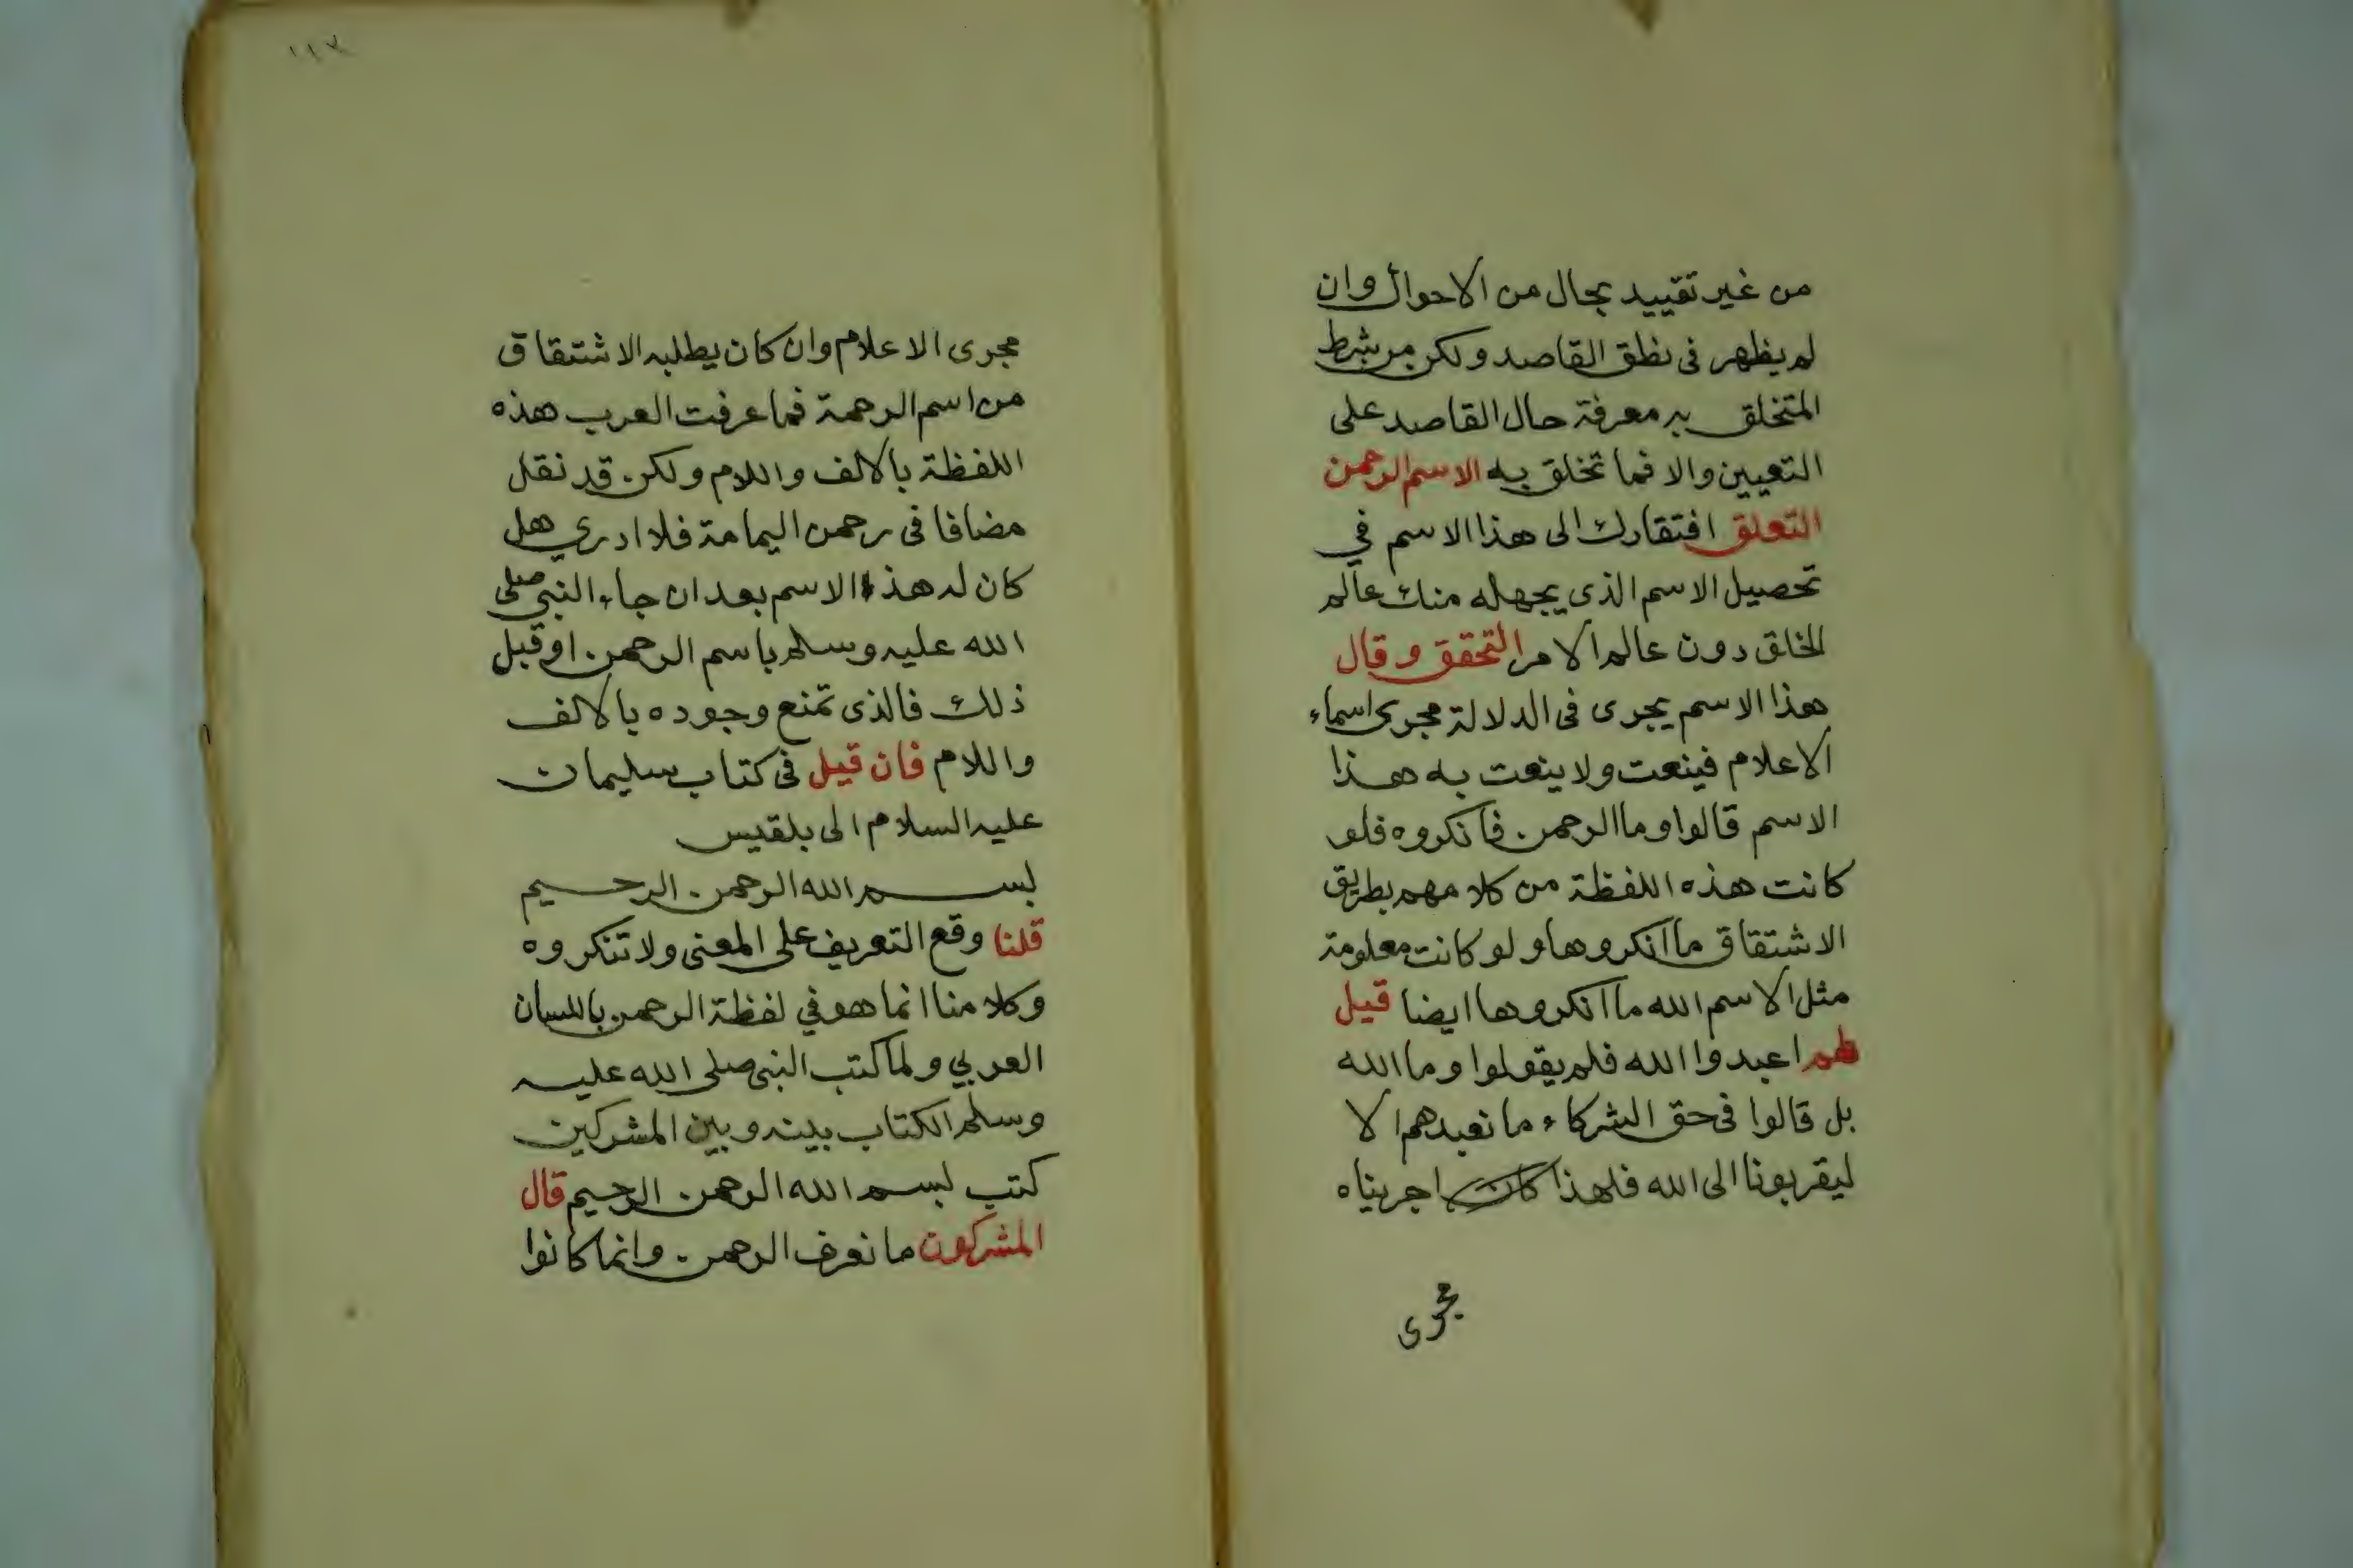 من غير تقييد بحال من الاحوال وان
لم يظهر فى نطق القاصد ولكن من شرط
المتخلق به معرفة حال القاصد على
التعيين والا فما تخلق به الاسم الرحمن
التعلق افتقارك الى هذا الاسم في
تحصيل الاسم الذى يجهله منك عالم
الخلق دون عالم الامر التحقق وقال
هذا الاسم يجرى فى الدلالة مجرى اسماء
الاعلام فينعت ولا ينعت به هذا
الاسم قالوا وما الرحمن فانكروه فلو
كانت هذه اللفظة من كلامهم بطريق
الاشتقاق ما انكروها ولو كانت معلومة
مثل الاسم الله ما انكروها ايضا قيل
لهم اعبدوا الله فلم يقولوا وما الله
بل قالوا فى حق الشركاء ما نعبدهم الا
ليقربونا الى الله فلهذا كان اجريناه
مجرى
١١٣
مجرى الاعلام وان كان يطلبه الاشتقاق
من اسم الرحمة فما عرفت العرب هذه
اللفظة بالالف واللام ولكن قد نقل
مضافا فى رحمن اليمامة فلا ادري هل
كان له هذا الاسم بعد ان جاء النبي صلى
الله عليه وسلم باسم الرحمن او قبل
ذلك فالذى تمنع وجوده بالالف
واللام فان قيل فى كتاب سليمان
عليه السلام الى بلقيس
بسم الله الرحمن الرحيم
قلنا وقع التعريف على المعنى ولا تنكروه
وكلامنا انما هو في لفظة الرحمن باللسان
العربي ولما كتب النبى صلى الله عليه
وسلم الكتاب بينه وبين المشركين
كتب بسم الله الرحمن الرحيم قال
المشركون ما نعرف الرحمن وانما كانوا